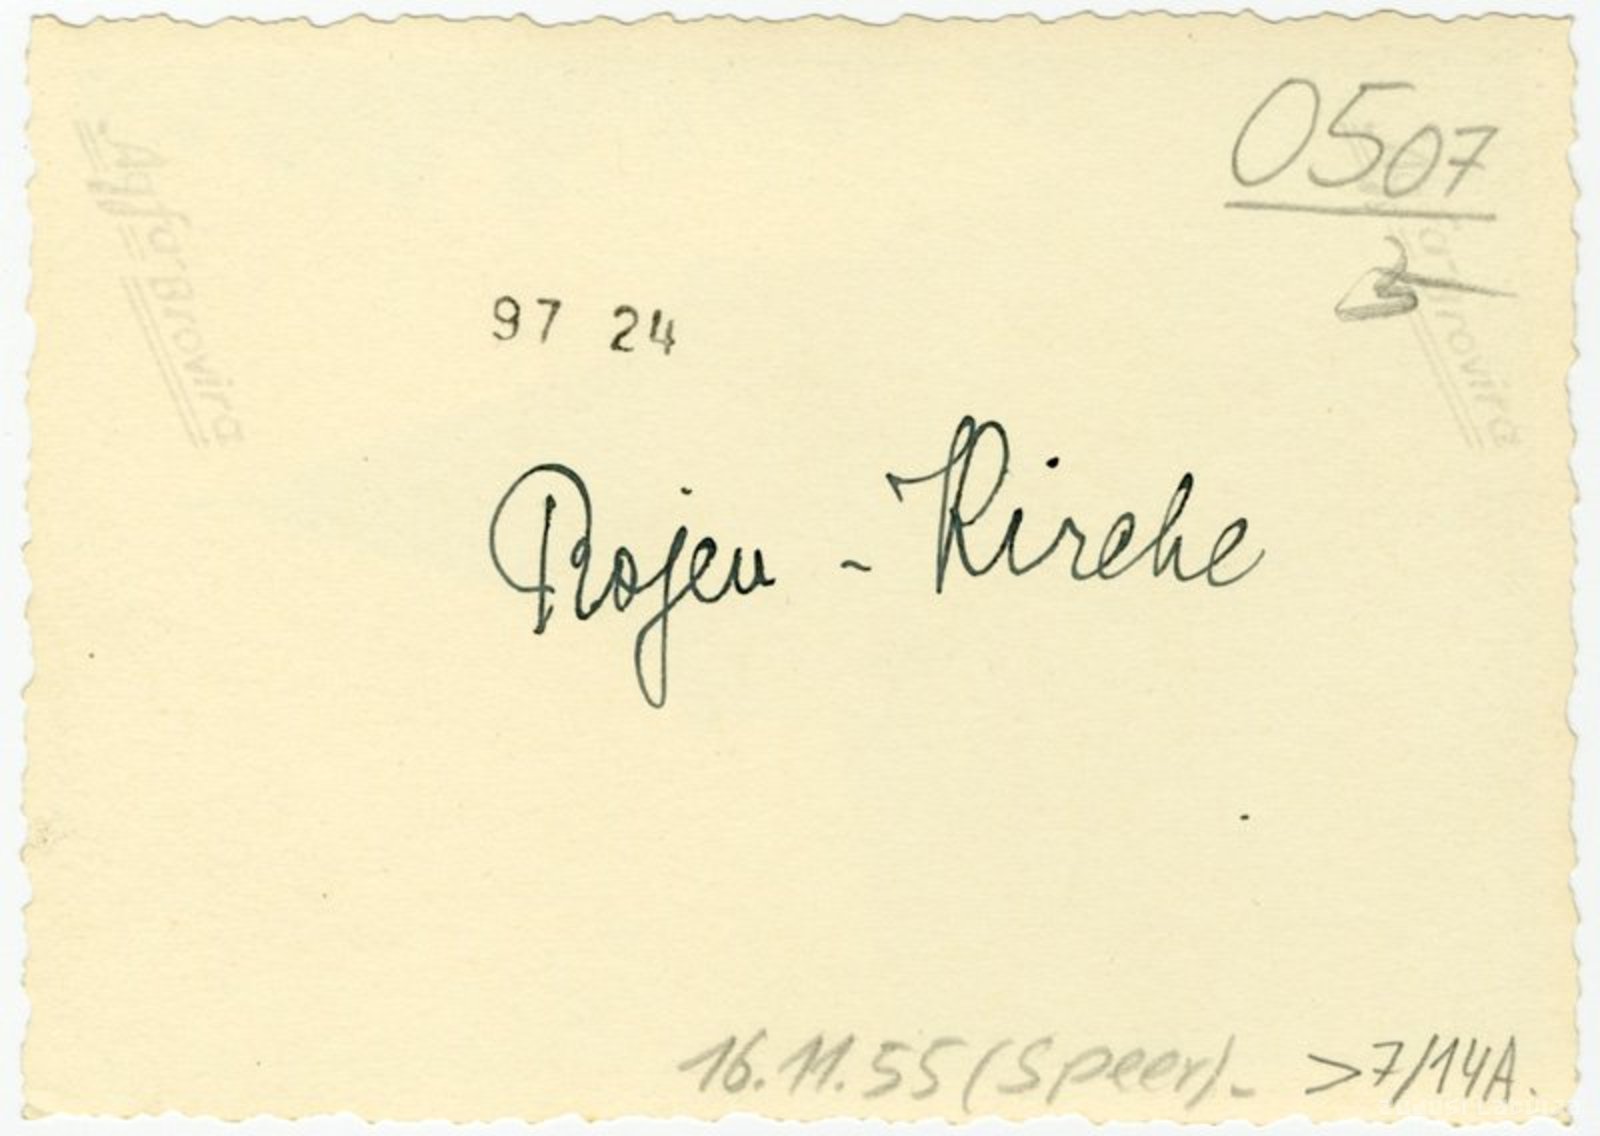 0507
97 24
Rojen - Kirche
16.11.55 (Speer). >7/14A.
Agfa Brovira